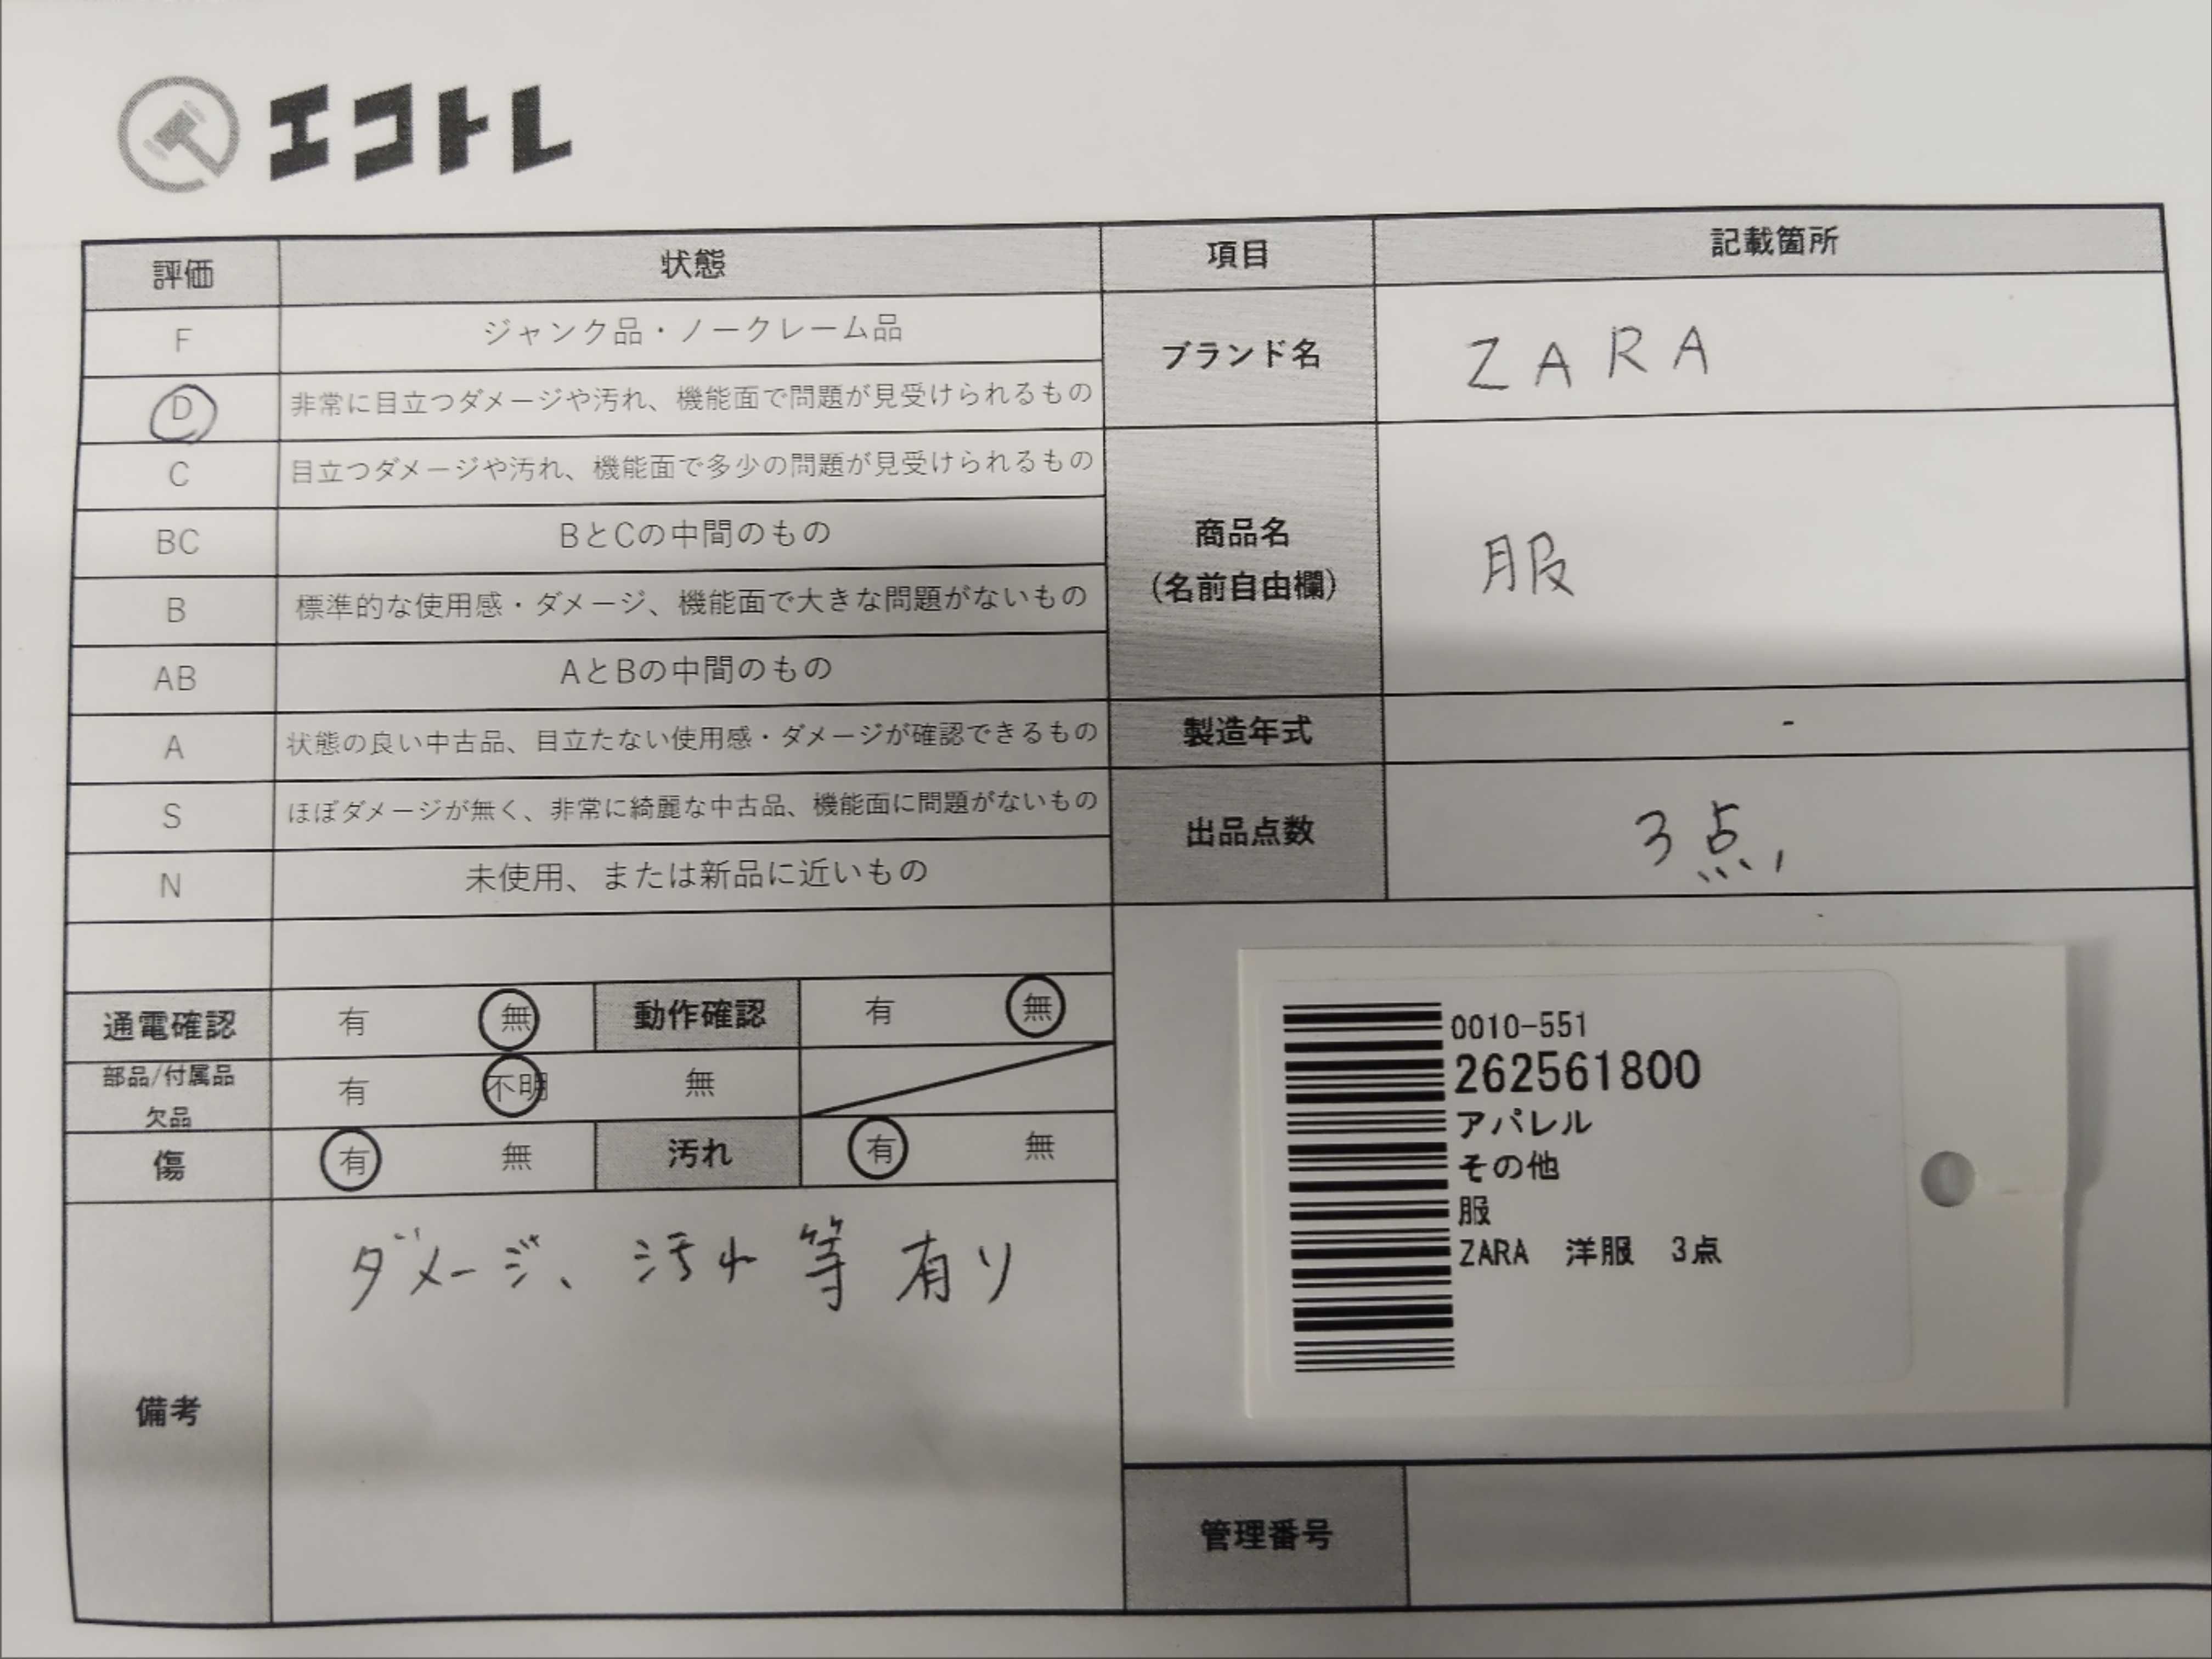 エコトレ
評価 状態 項目 記載箇所
F ジャンク品・ノークレーム品
ブランド名 ZARA
D 非常に目立つダメージや汚れ、機能面で問題が見受けられるもの
C 目立つダメージや汚れ、機能面で多少の問題が見受けられるもの
BC BとCの中間のもの
商品名
(名前自由欄)
服
B 標準的な使用感・ダメージ、機能面で大きな問題がないもの
AB AとBの中間のもの
A 状態の良い中古品、目立たない使用感・ダメージが確認できるもの
製造年式 -
S ほぼダメージが無く、非常に綺麗な中古品、機能面に問題がないもの
出品点数 3点,
N 未使用、または新品に近いもの
通電確認 有 無 動作確認 有 無
部品/付属品
欠品
有 不明 無
傷 有 無 汚れ 有 無
備考
ダメージ、汚れ等有り
0010-551
262561800
アパレル
その他
服
ZARA 洋服 3点
管理番号